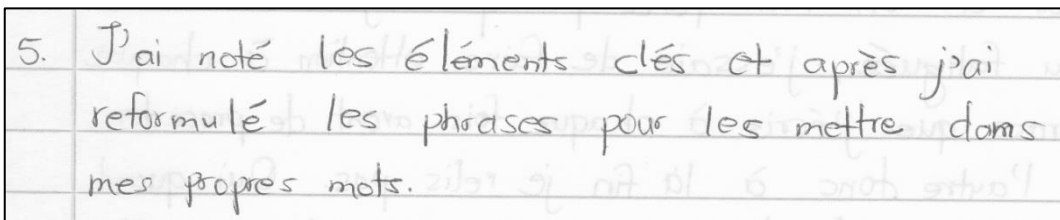 5. J'ai noté les éléments clés et après j'ai
reformulé les phrases pour les mettre dans
mes propres mots.